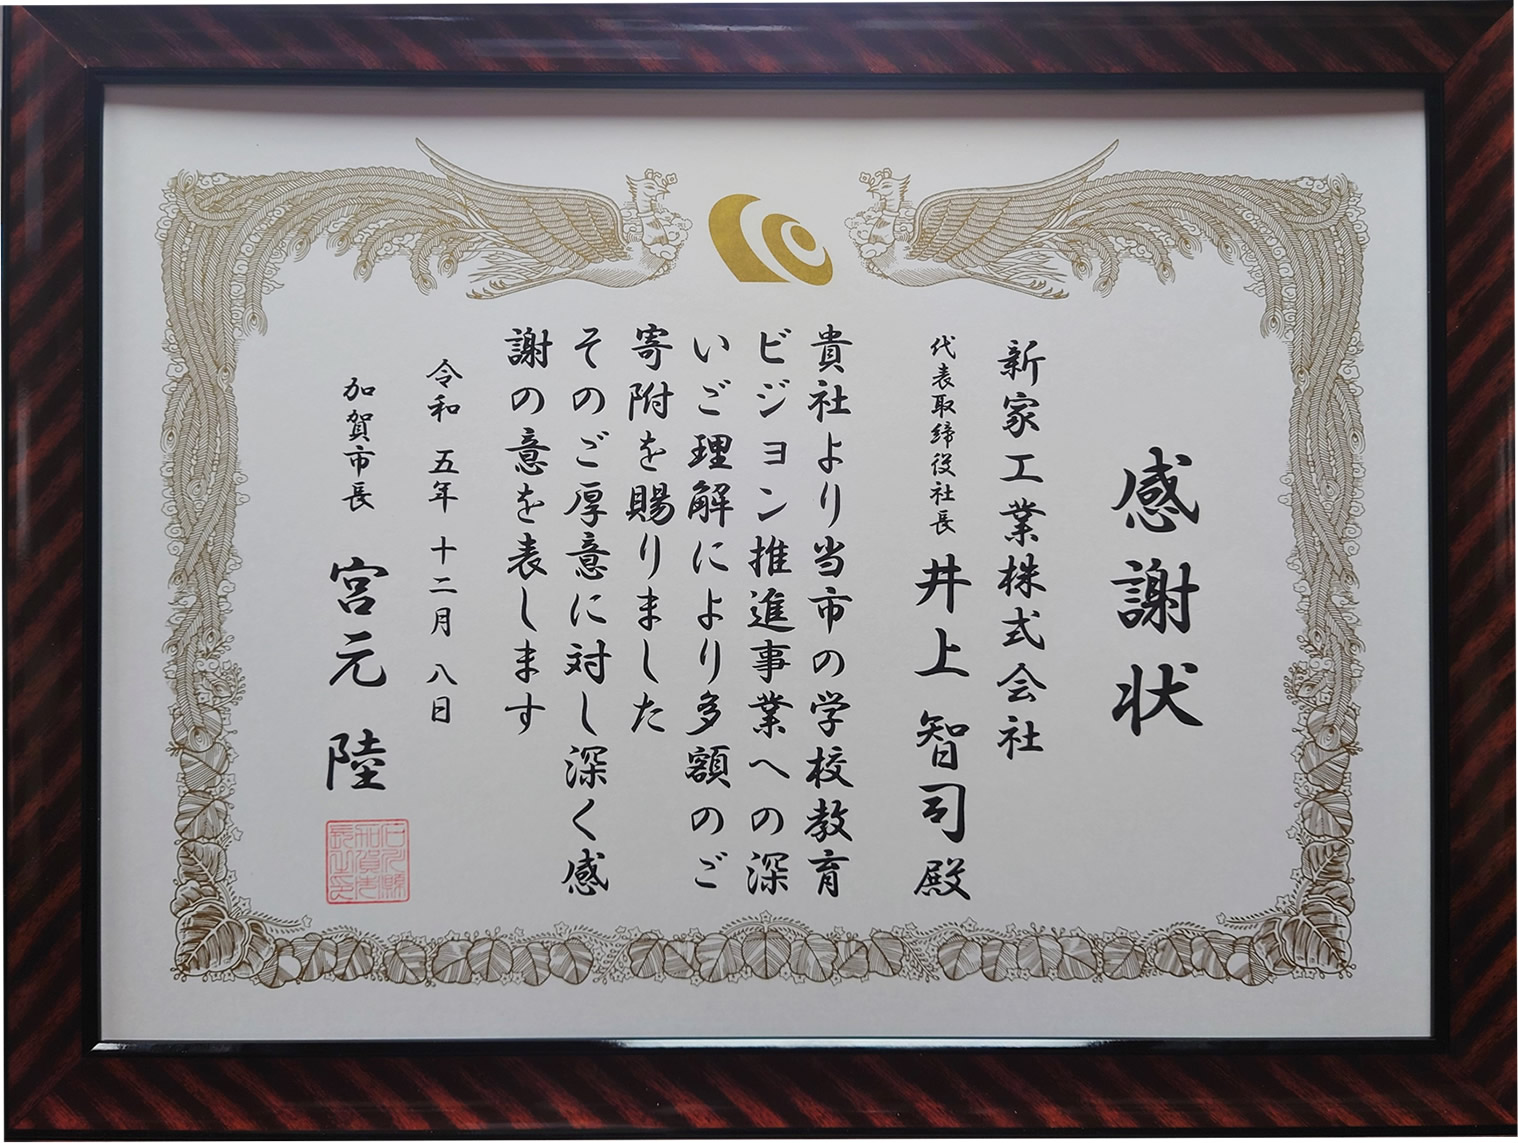 感謝状
新家工業株式会社
代表取締役社長 井上 智司 殿
貴社より当市の学校教育
ビジョン推進事業への深
いご理解により多額のご
寄附を賜りました
そのご厚意に対し深く感
謝の意を表します
令和 五年 十二月 八日
加賀市長 宮元 陸